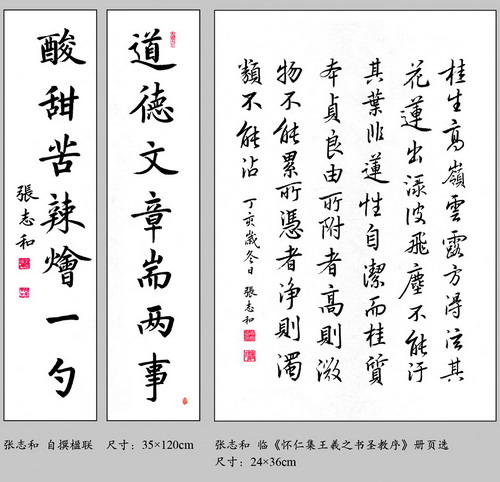 道德文章耑两事
酸甜苦辣燴一勺
張志和
桂生高嶺雲露方得泫其
花蓮出淥波飛塵不能汙
其葉非蓮性自潔而桂質
本貞良由所附者高則微
物不能累所憑者淨則濁
類不能沾
丁亥歲冬日 張志和
张志和 自撰楹联 尺寸：35×120cm
张志和 临《怀仁集王羲之书圣教序》册页选
尺寸：24×36cm